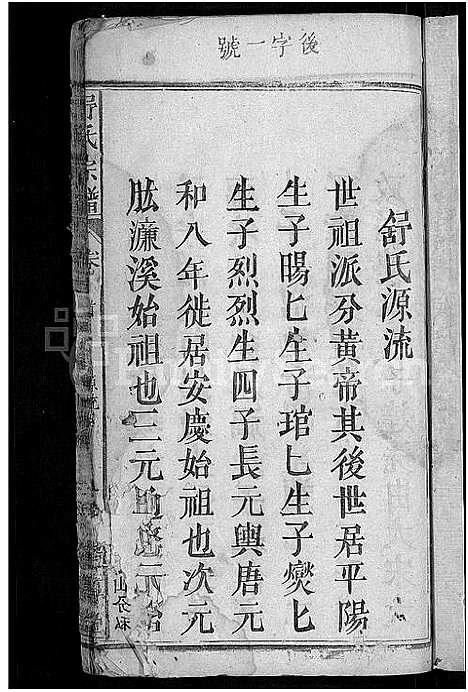 後字一號
舒氏源流
世祖派分黃帝其後世居平陽
生子暘匕生子琯匕生子燮匕
生子烈烈生四子長元輿唐元
和八年徙居安慶始祖也次元
肱濂溪始祖也三元
舒氏宗譜 卷